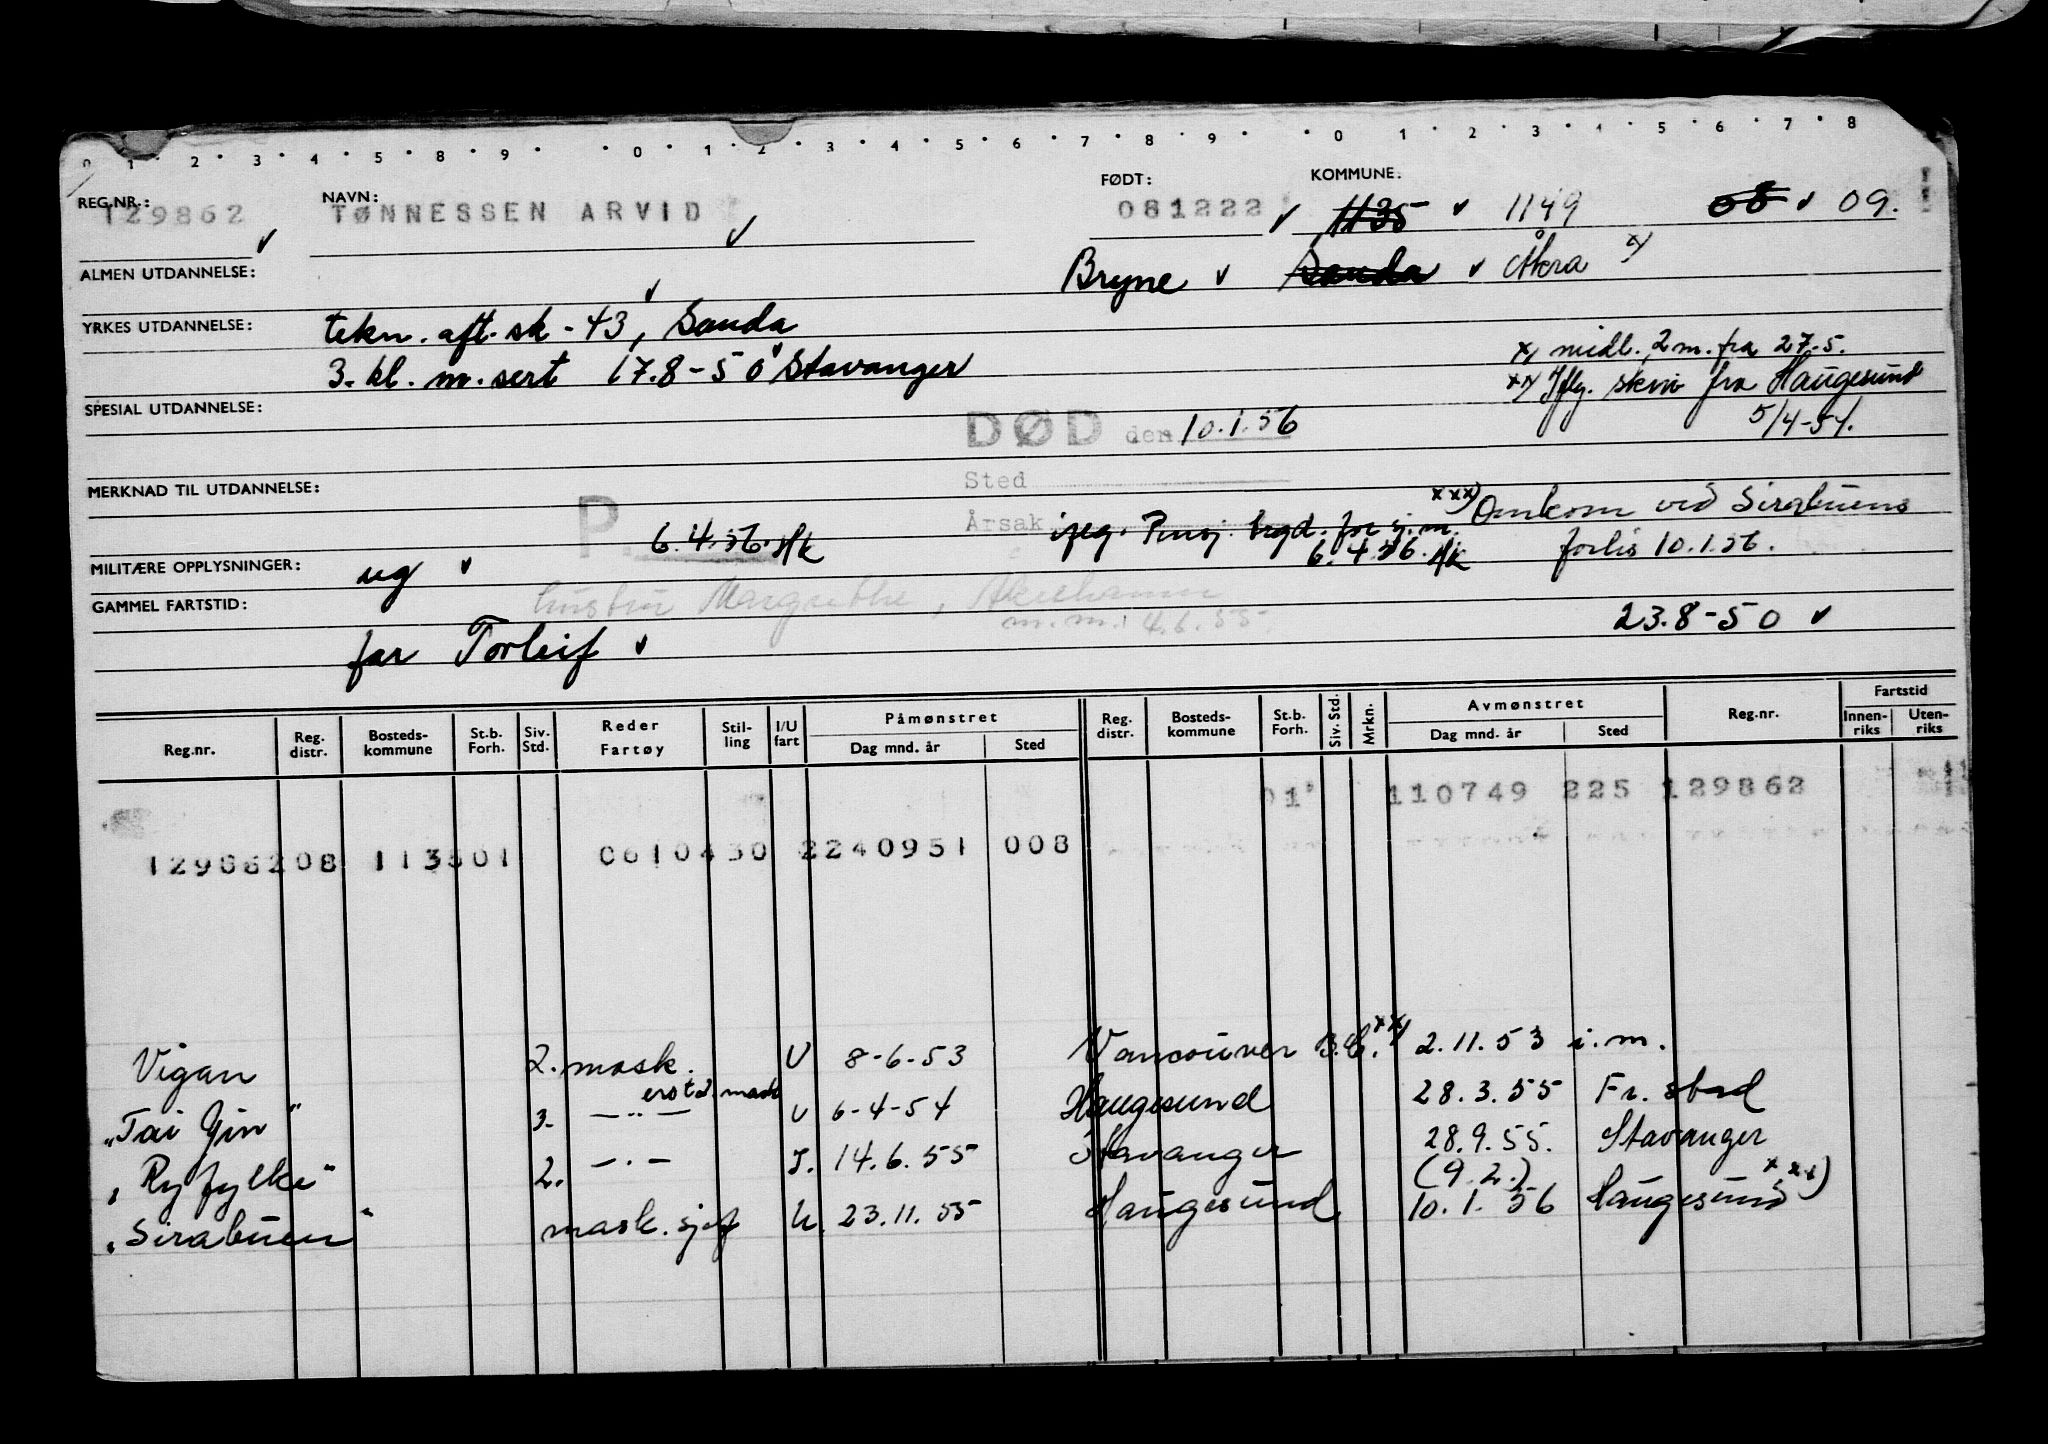 0 1 2 3 4 5 6 8 9 0 1 2 3 4 5 6 7 8 9 0 1 2 3 4 5 6 7 8
REG.NR.: NAVN: FØDT: KOMMUNE:
129862 TØNNESSEN ARVID 081222 1135 1149 08 09.
ALMEN UTDANNELSE: Bryne Sauda Åkra x)
YRKES UTDANNELSE: tekn. aft. sk - 43, Sauda
x) midl. 2 m. fra 27.5.
3. kl. m. sert 17.8-50 Stavanger
xx) Iflg. skriv fra Haugesund
5/4-54.
SPESIAL UTDANNELSE:
DØD den 10.1.56
Sted
MERKNAD TIL UTDANNELSE:
Årsak
P. 6.4.56.
6.4.56.
xxx) Omkom ved Sirabuens
forlis 10.1.56.
MILITÆRE OPPLYSNINGER: ug
GAMMEL FARTSTID:
hustru Margrethe, Åkrehamn
m.m. 4.6.55.
23.8-50
far Torleif
Reg.nr. Reg. distr. Bosteds-kommune St.b. Forh. Siv. Std. Reder Fartøy Stil-ling I/U fart Påmønstret Dag mnd. år Sted Reg. distr. Bosteds-kommune St.b. Forh. Siv. Std. Mrkn. Avmønstret Dag mnd. år Sted Reg.nr. Fartstid Innen-riks Uten-riks
01 110749 225 129862
12986208 113501 0610430 2240951 008
Vigan 2. mask. U 8-6-53 Vancouver B.C. xx) 2.11.53 i.m.
"Tai Yin" 3. — " — U 6-4-54 Haugesund 28.3.55 Fr. stad
"Ryfylke" 2. — " — I. 14.6.55 Stavanger 28.9.55. Stavanger
(9.2.)
"Sirabuen" mask. sjef U. 23.11.55 Haugesund 10.1.56 Haugesund xxx)